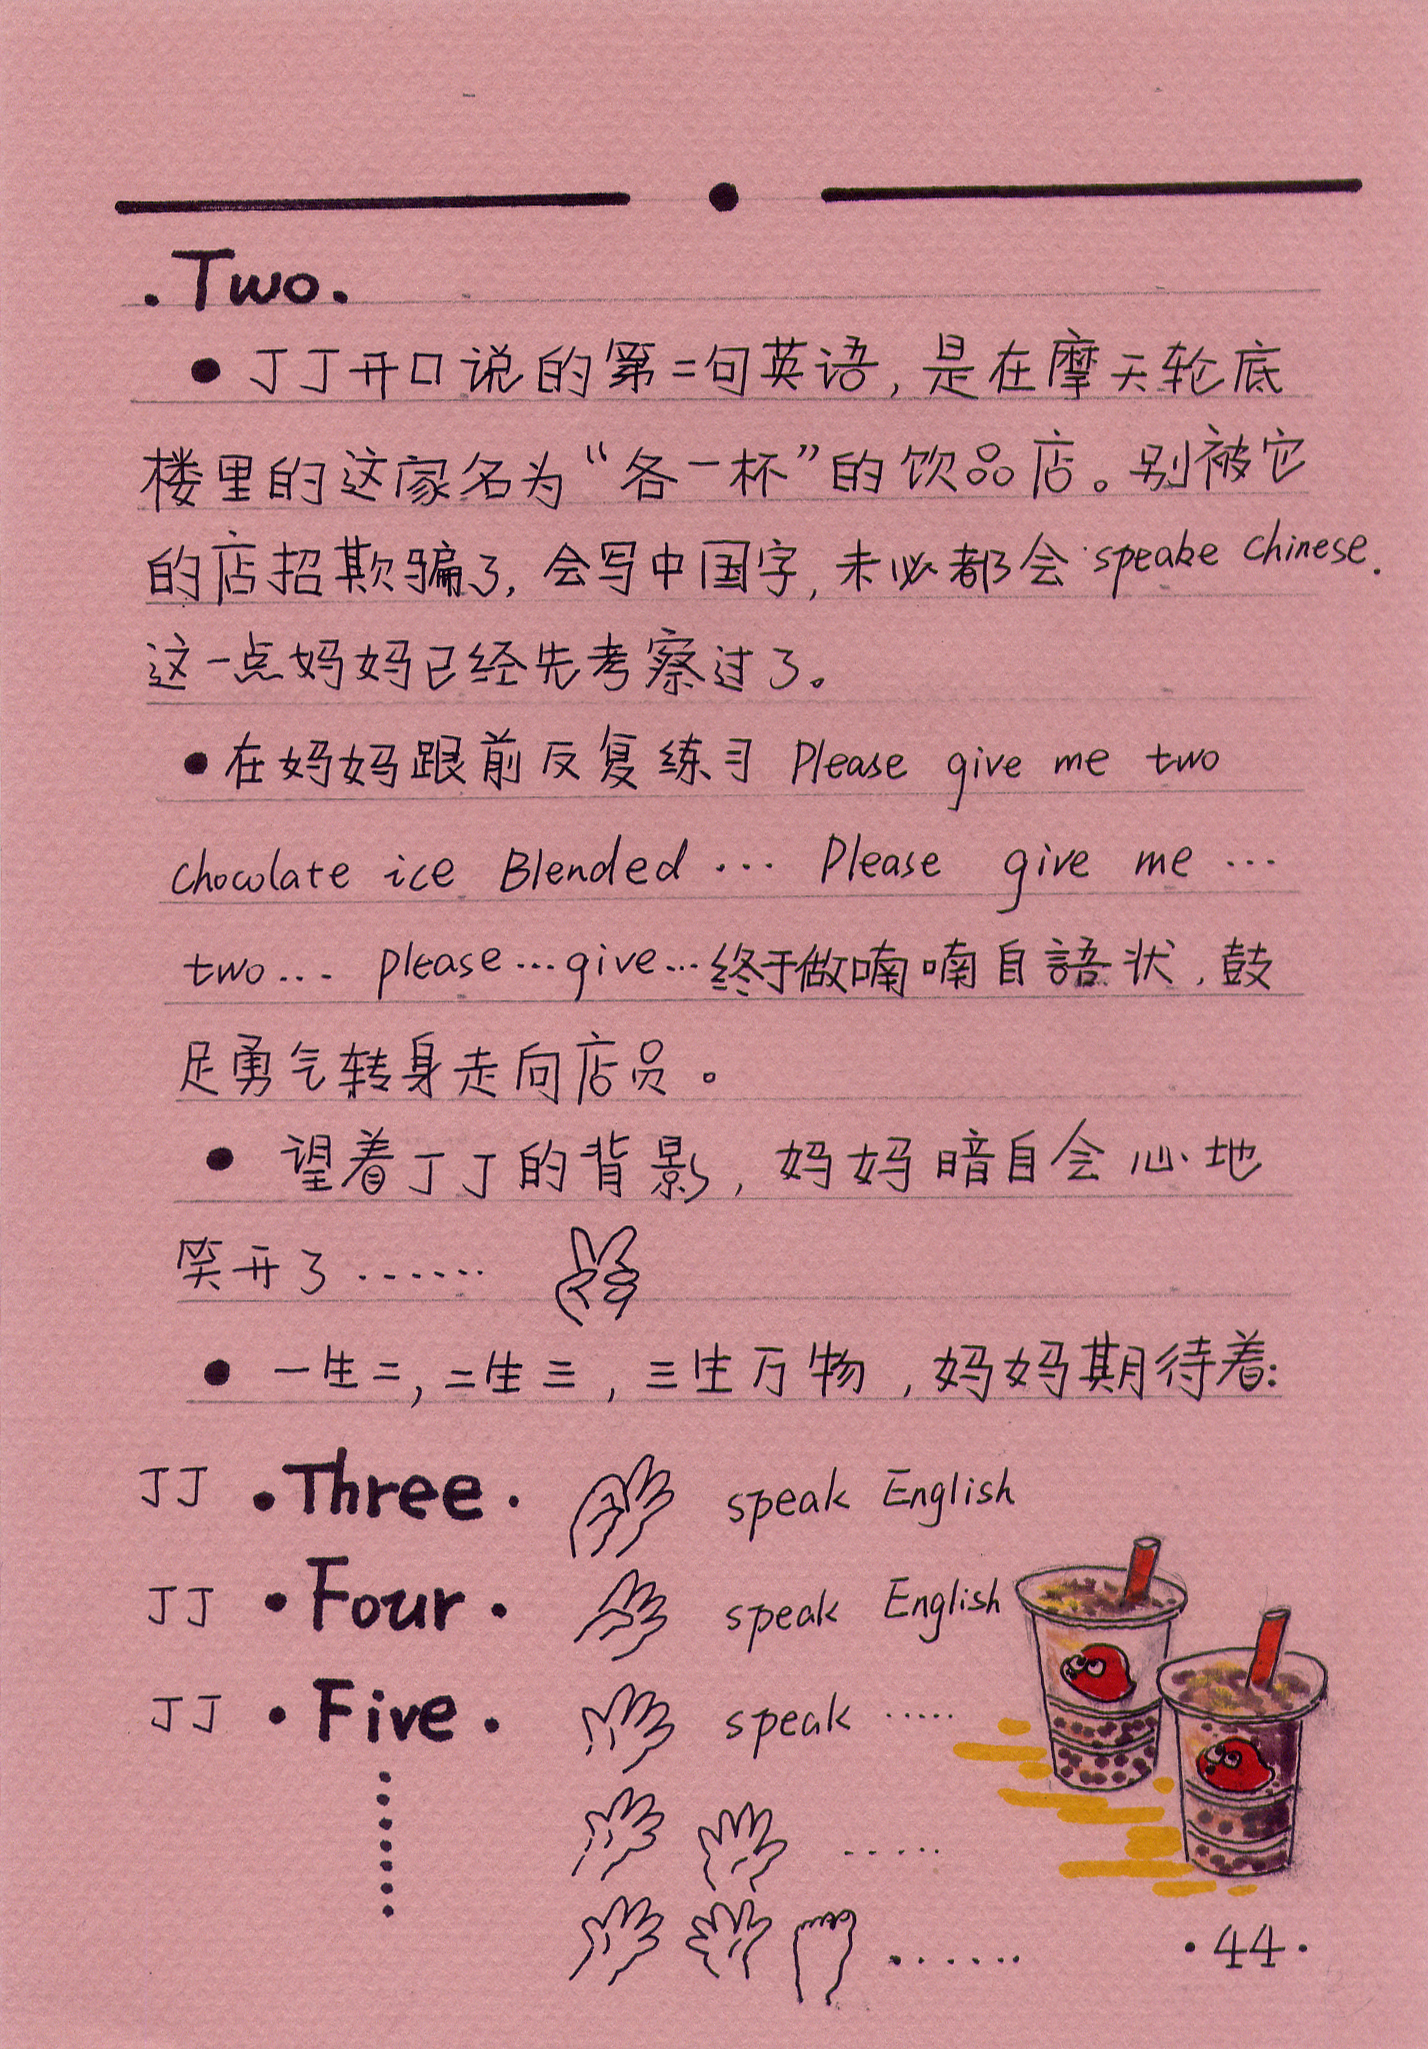 ·Two·
●丁丁开口说的第二句英语，是在摩天轮底
楼里的这家名为“各一杯”的饮品店。别被它
的店招欺骗了，会写中国字，未必都会speake Chinese.
这一点妈妈已经先考察过了。
●在妈妈跟前反复练习 Please give me two
chocolate ice Blended … Please give me …
two… please…give…终于做喃喃自語状，鼓
足勇气转身走向店员。
● 望着丁丁的背影，妈妈暗自会心地
笑开了……
● 一生二，二生三，三生万物，妈妈期待着：
丁丁 ·Three· speak English
丁丁 ·Four· speak English
丁丁 ·Five· speak ……
……
……
·44·